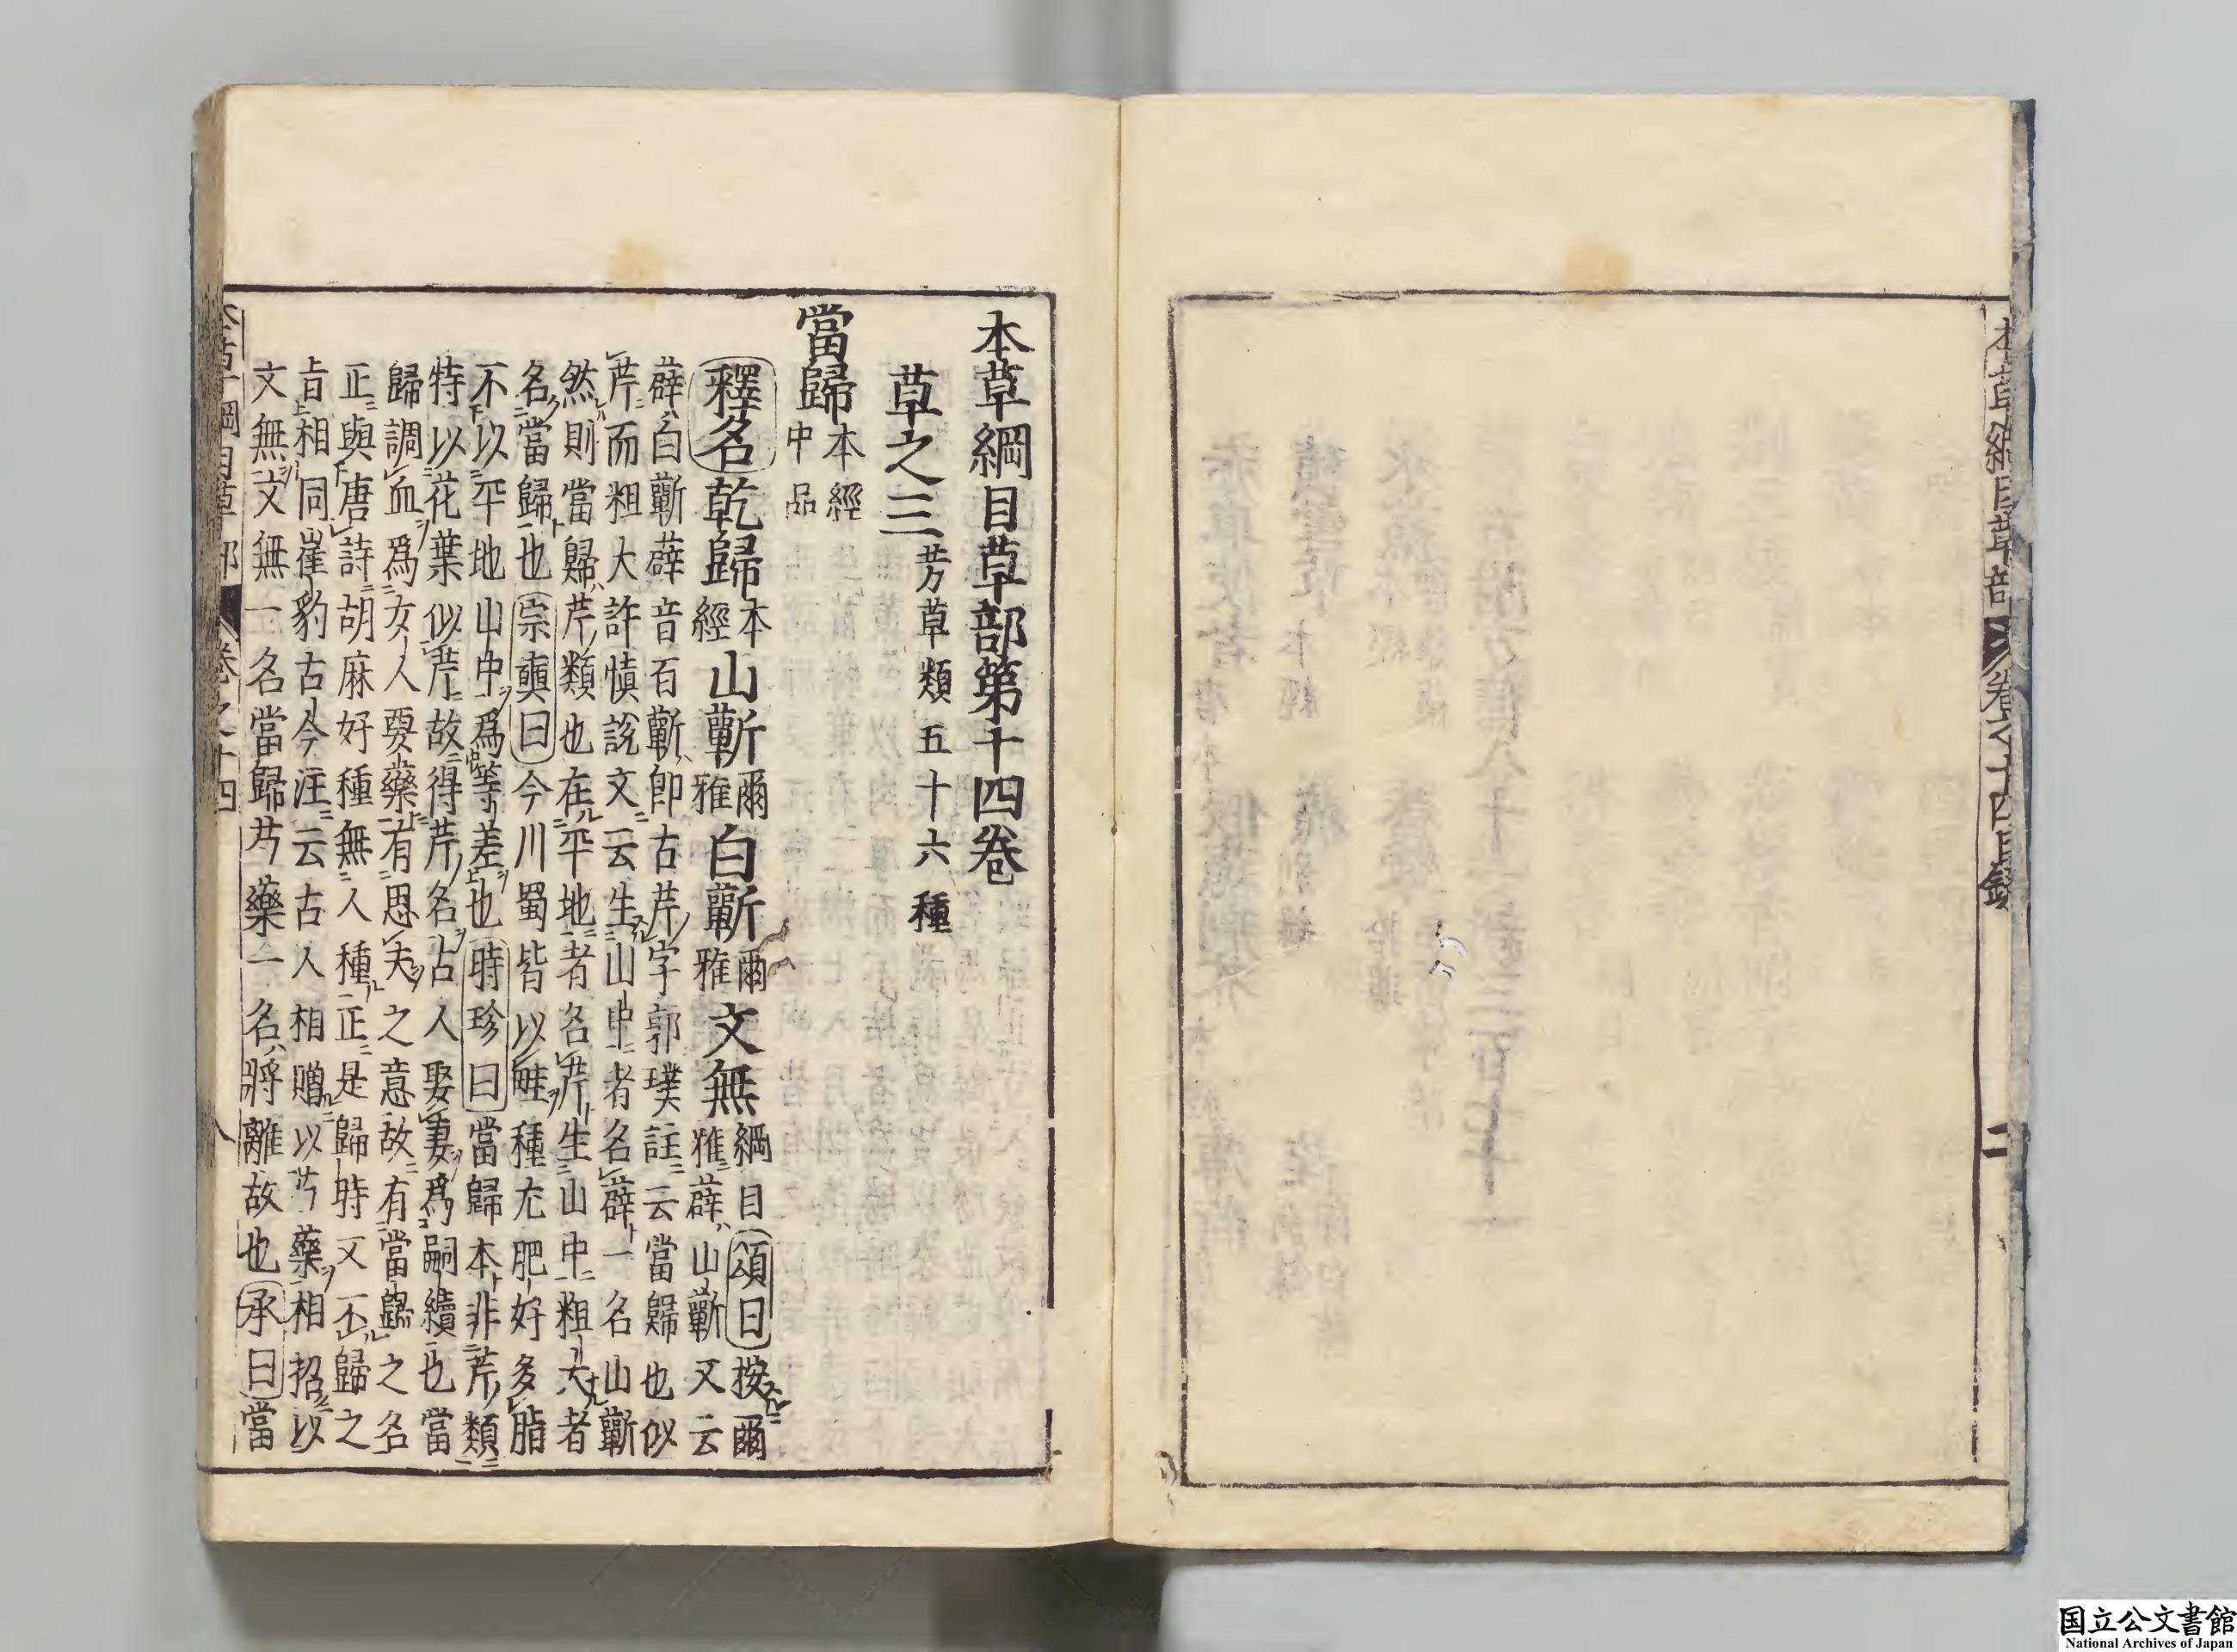 本草綱目草部 卷之十四目錄 二
本草綱目草部第十四卷
草之三 芳草類五十六種
當歸 本經中品
釋名 乾歸 本經 山蘄 爾雅 白蘄 爾雅 文無 綱目 頌曰按爾
雅薜山蘄又云
薜白蘄薜音百蘄即古芹字郭璞註云當歸也似
芹而粗大許慎說文云生山中者名薜一名山蘄
然則當歸芹類也在平地者名芹生山中粗大者
名當歸也宗奭曰今川蜀皆以畦種尤肥好多脂
不以平地山中為等差也時珍曰當歸本非芹類
特以花葉似芹故得芹名古人娶妻為嗣續也當
歸調血為女人要藥有思夫之意故有當歸之名
正與唐詩胡麻好種無人種正是歸時又不歸之
旨相同崔豹古今注云古人相贈以芍藥相招以
文無文無一名當歸芍藥一名將離故也承曰當
本草綱目草部 卷之十四 八
国立公文書館
National Archives of Japan